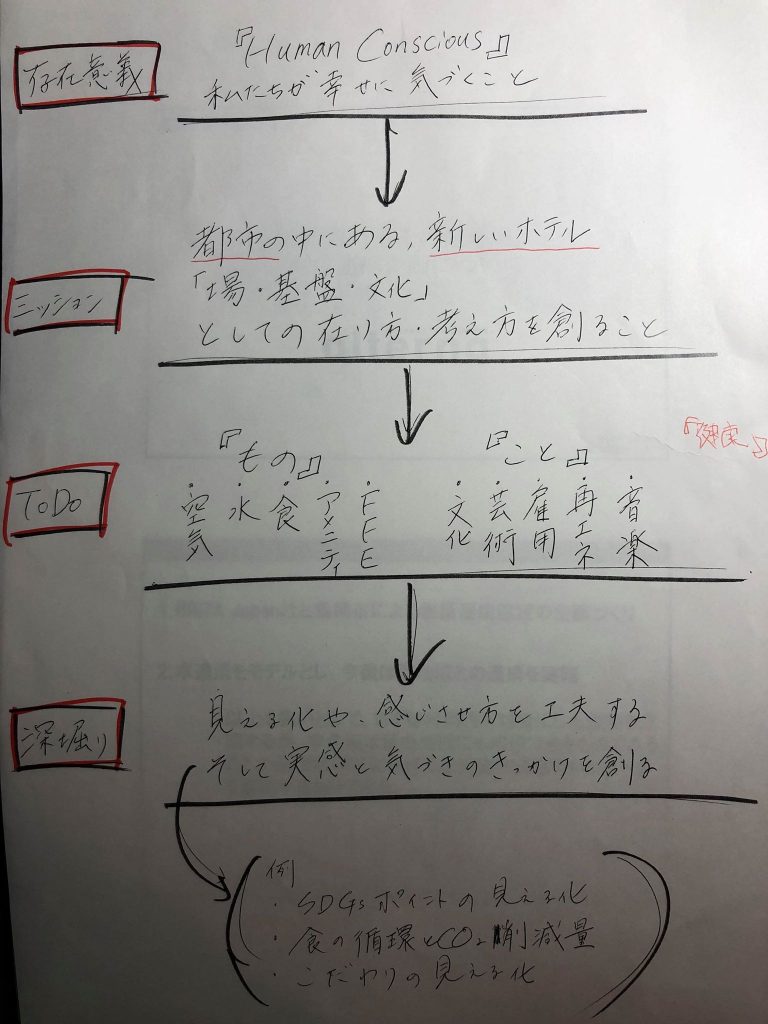 存在意義
『Human Conscious』
私たちが幸せに気づくこと
ミッション
都市の中にある,新しいホテル
「場・基盤・文化」
としての在り方・考え方を創ること
ToDo
『もの』
・空気
・水
・食
・アメニティ
・FFE
『こと』
・文化
・芸術
・雇用
・再エネ
・音楽
『健康』
深堀り
見える化や、感じさせ方を工夫する
そして実感と気づきのきっかけを創る
例
・SDGsポイントの見える化
・食の循環とCO2削減量
・こだわりの見える化